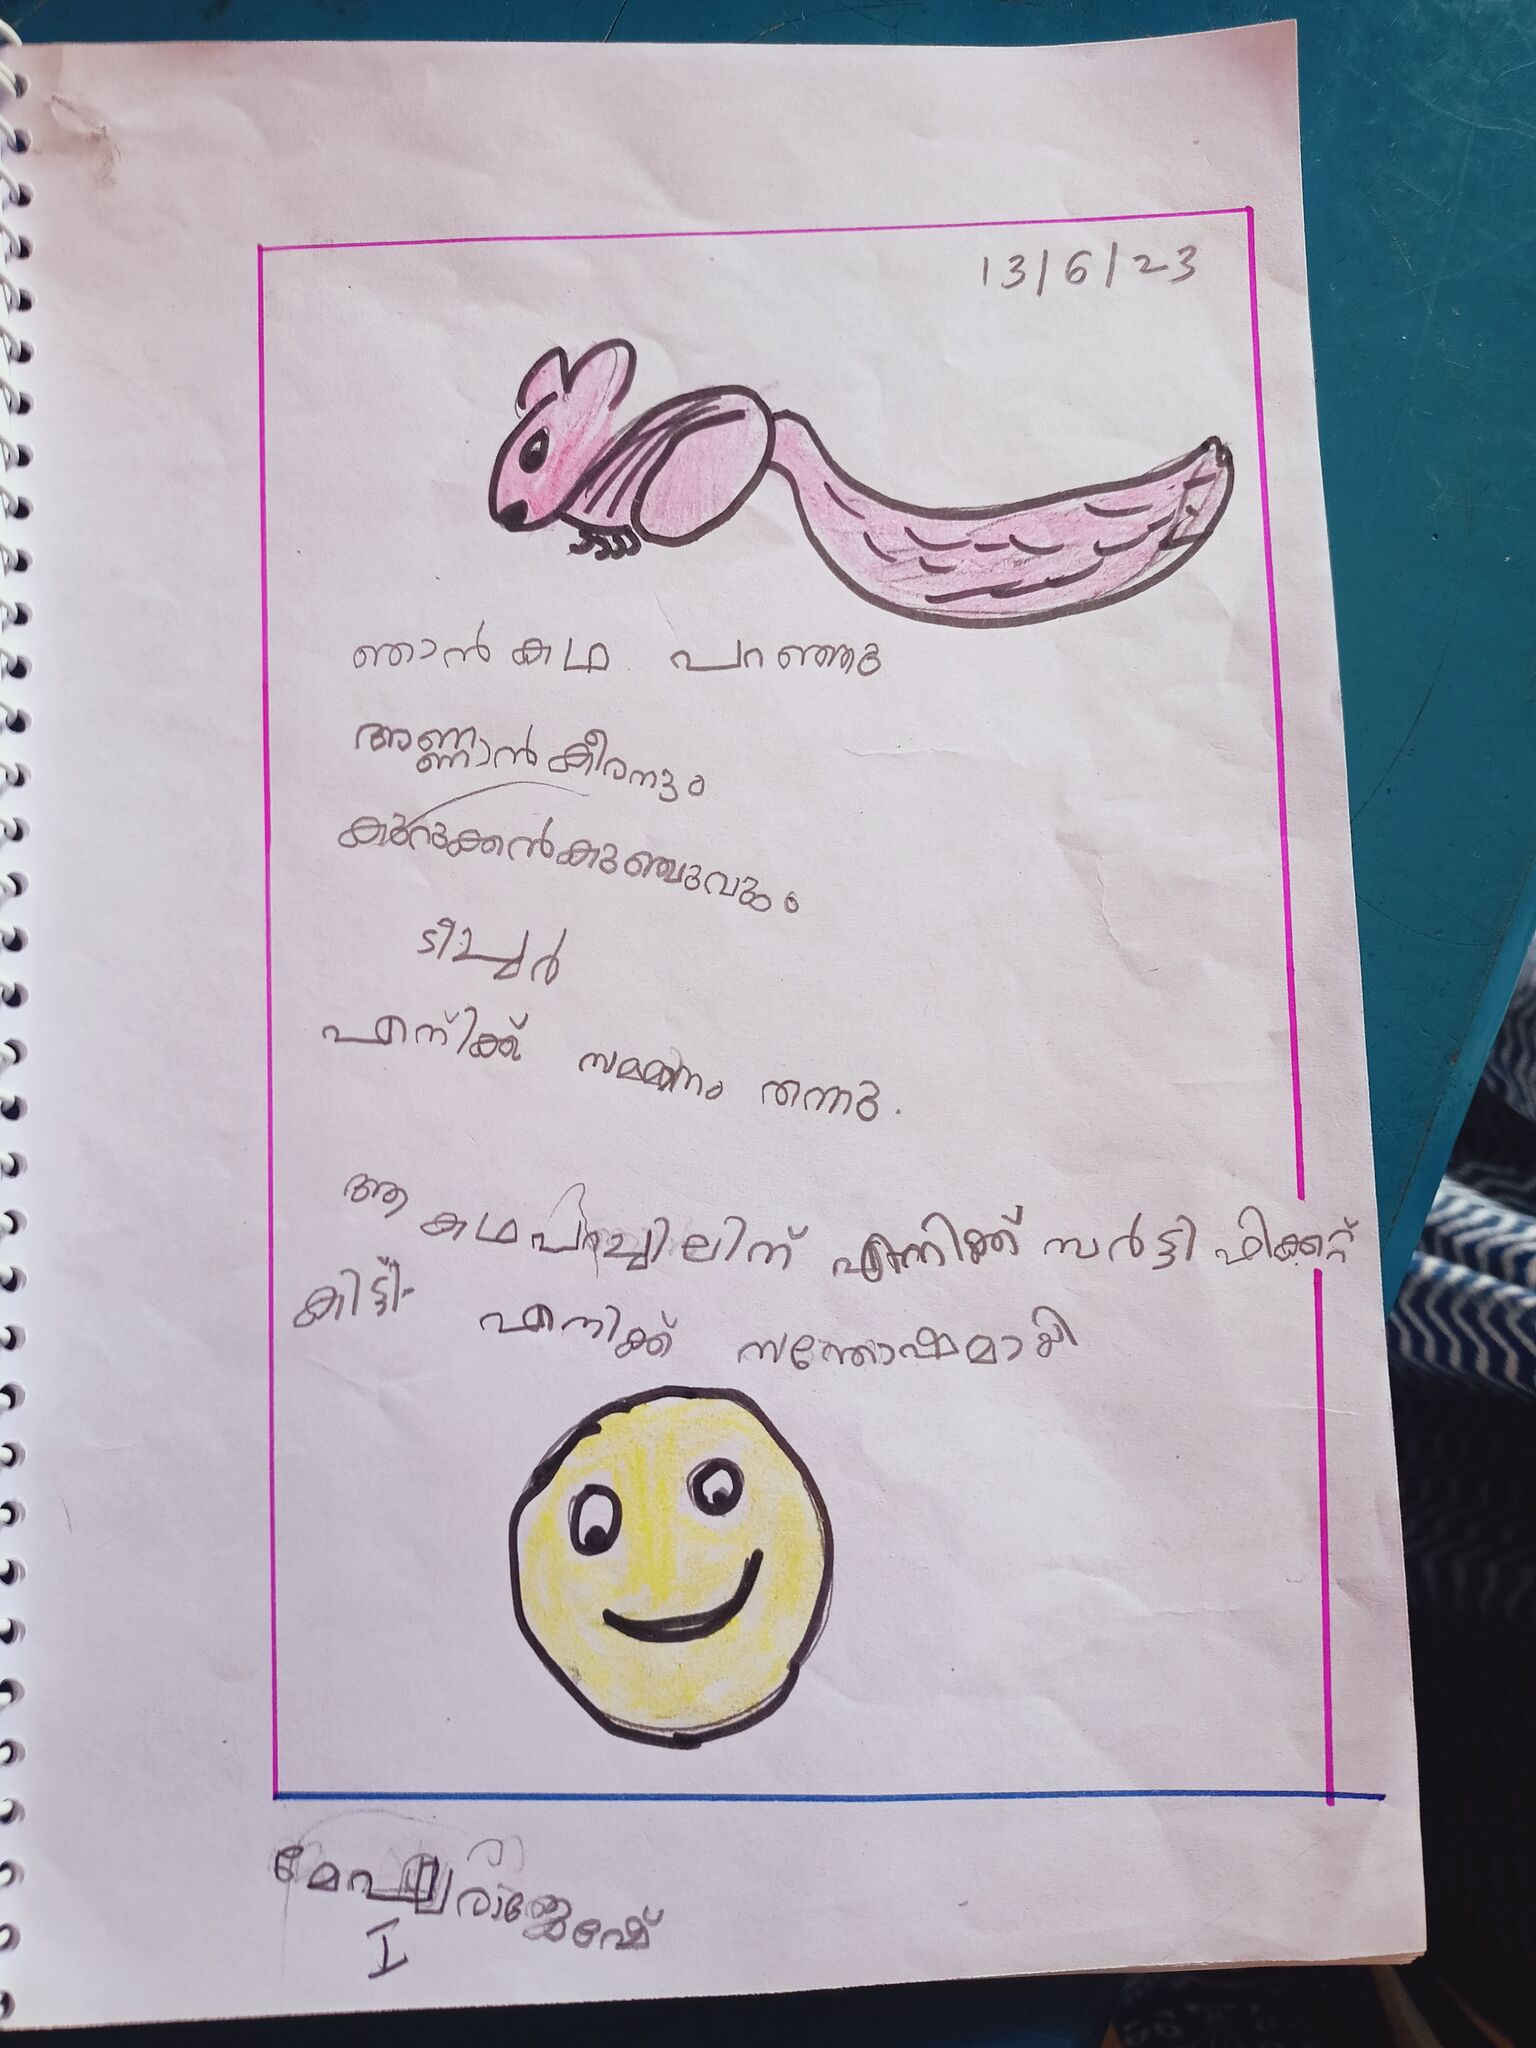 13/6/23
ഞാൻ കഥ പറഞ്ഞു
അണ്ണാൻകീരനും
കുറുക്കൻകുഞ്ചുവും
ടീച്ചർ
എനിക്ക് സമ്മനം തന്നു.
ആ കഥപറച്ചിലിന് എനിക്ക് സർട്ടിഫിക്കറ്റ്
കിട്ടി എനിക്ക് സന്തോഷമായി
മേഘ രാജേഷ്
I